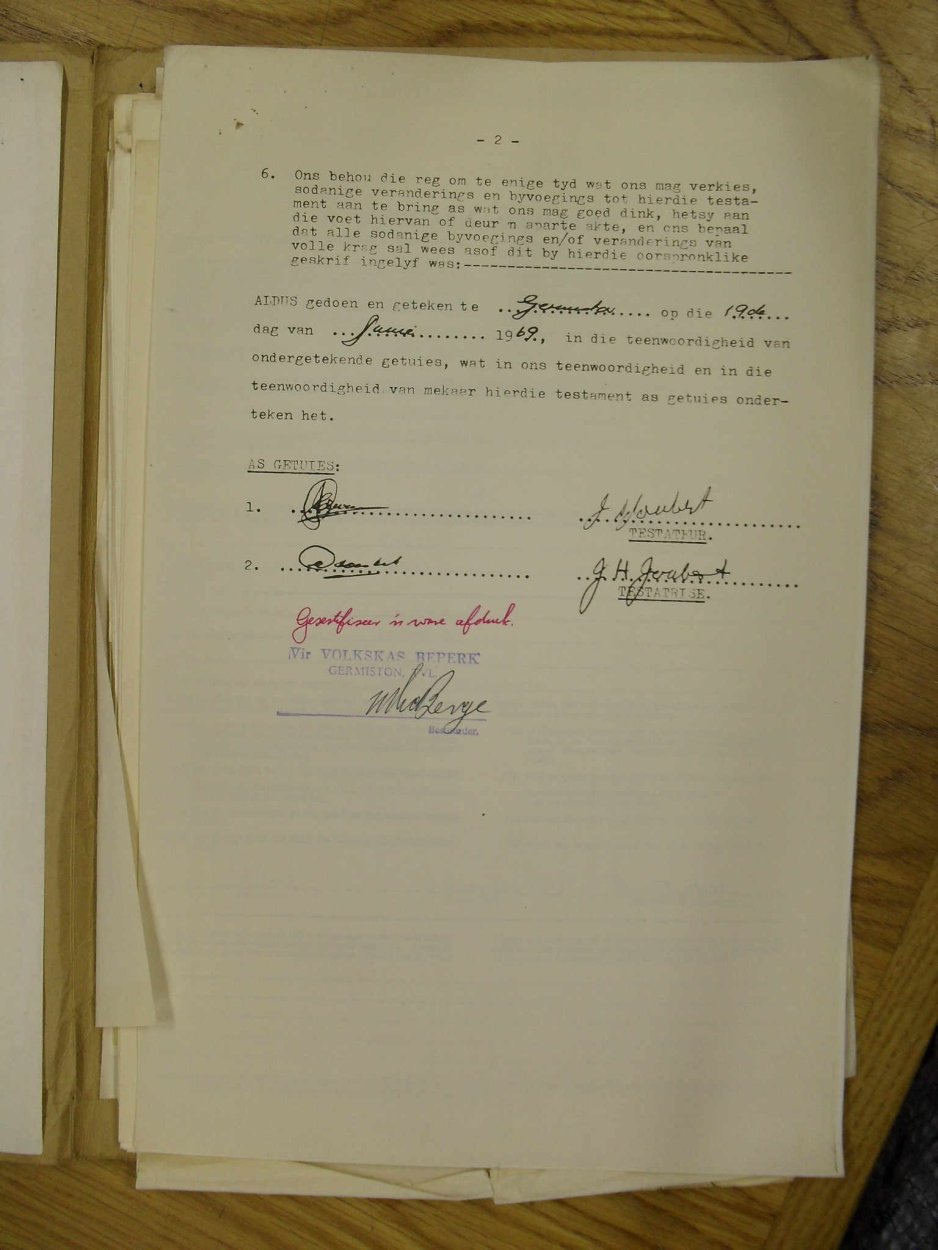 - 2 -
6. Ons behou die reg om te enige tyd wat ons mag verkies,
sodanige veranderings en byvoegings tot hierdie testa-
ment aan te bring as wat ons mag goed dink, hetsy aan
die voet hiervan of deur 'n aparte akte, en ons bepaal
dat alle sodanige byvoegings en/of veranderings van
volle krag sal wees asof dit by hierdie oorspronklike
geskrif ingelyf was:-
ALDUS gedoen en geteken te Germiston op die 19de
dag van Junie 1969, in die teenwoordigheid van
ondergetekende getuies, wat in ons teenwoordigheid en in die
teenwoordigheid van mekaar hierdie testament as getuies onder-
teken het.
AS GETUIES:
1. J. Joubert
TESTATEUR.
2. J H Joubert
TESTATRISE.
Gesertifiseer 'n ware afdruk.
Vir VOLKSKAS BEPERK
GERMISTON, TVL.
Bestuurder.